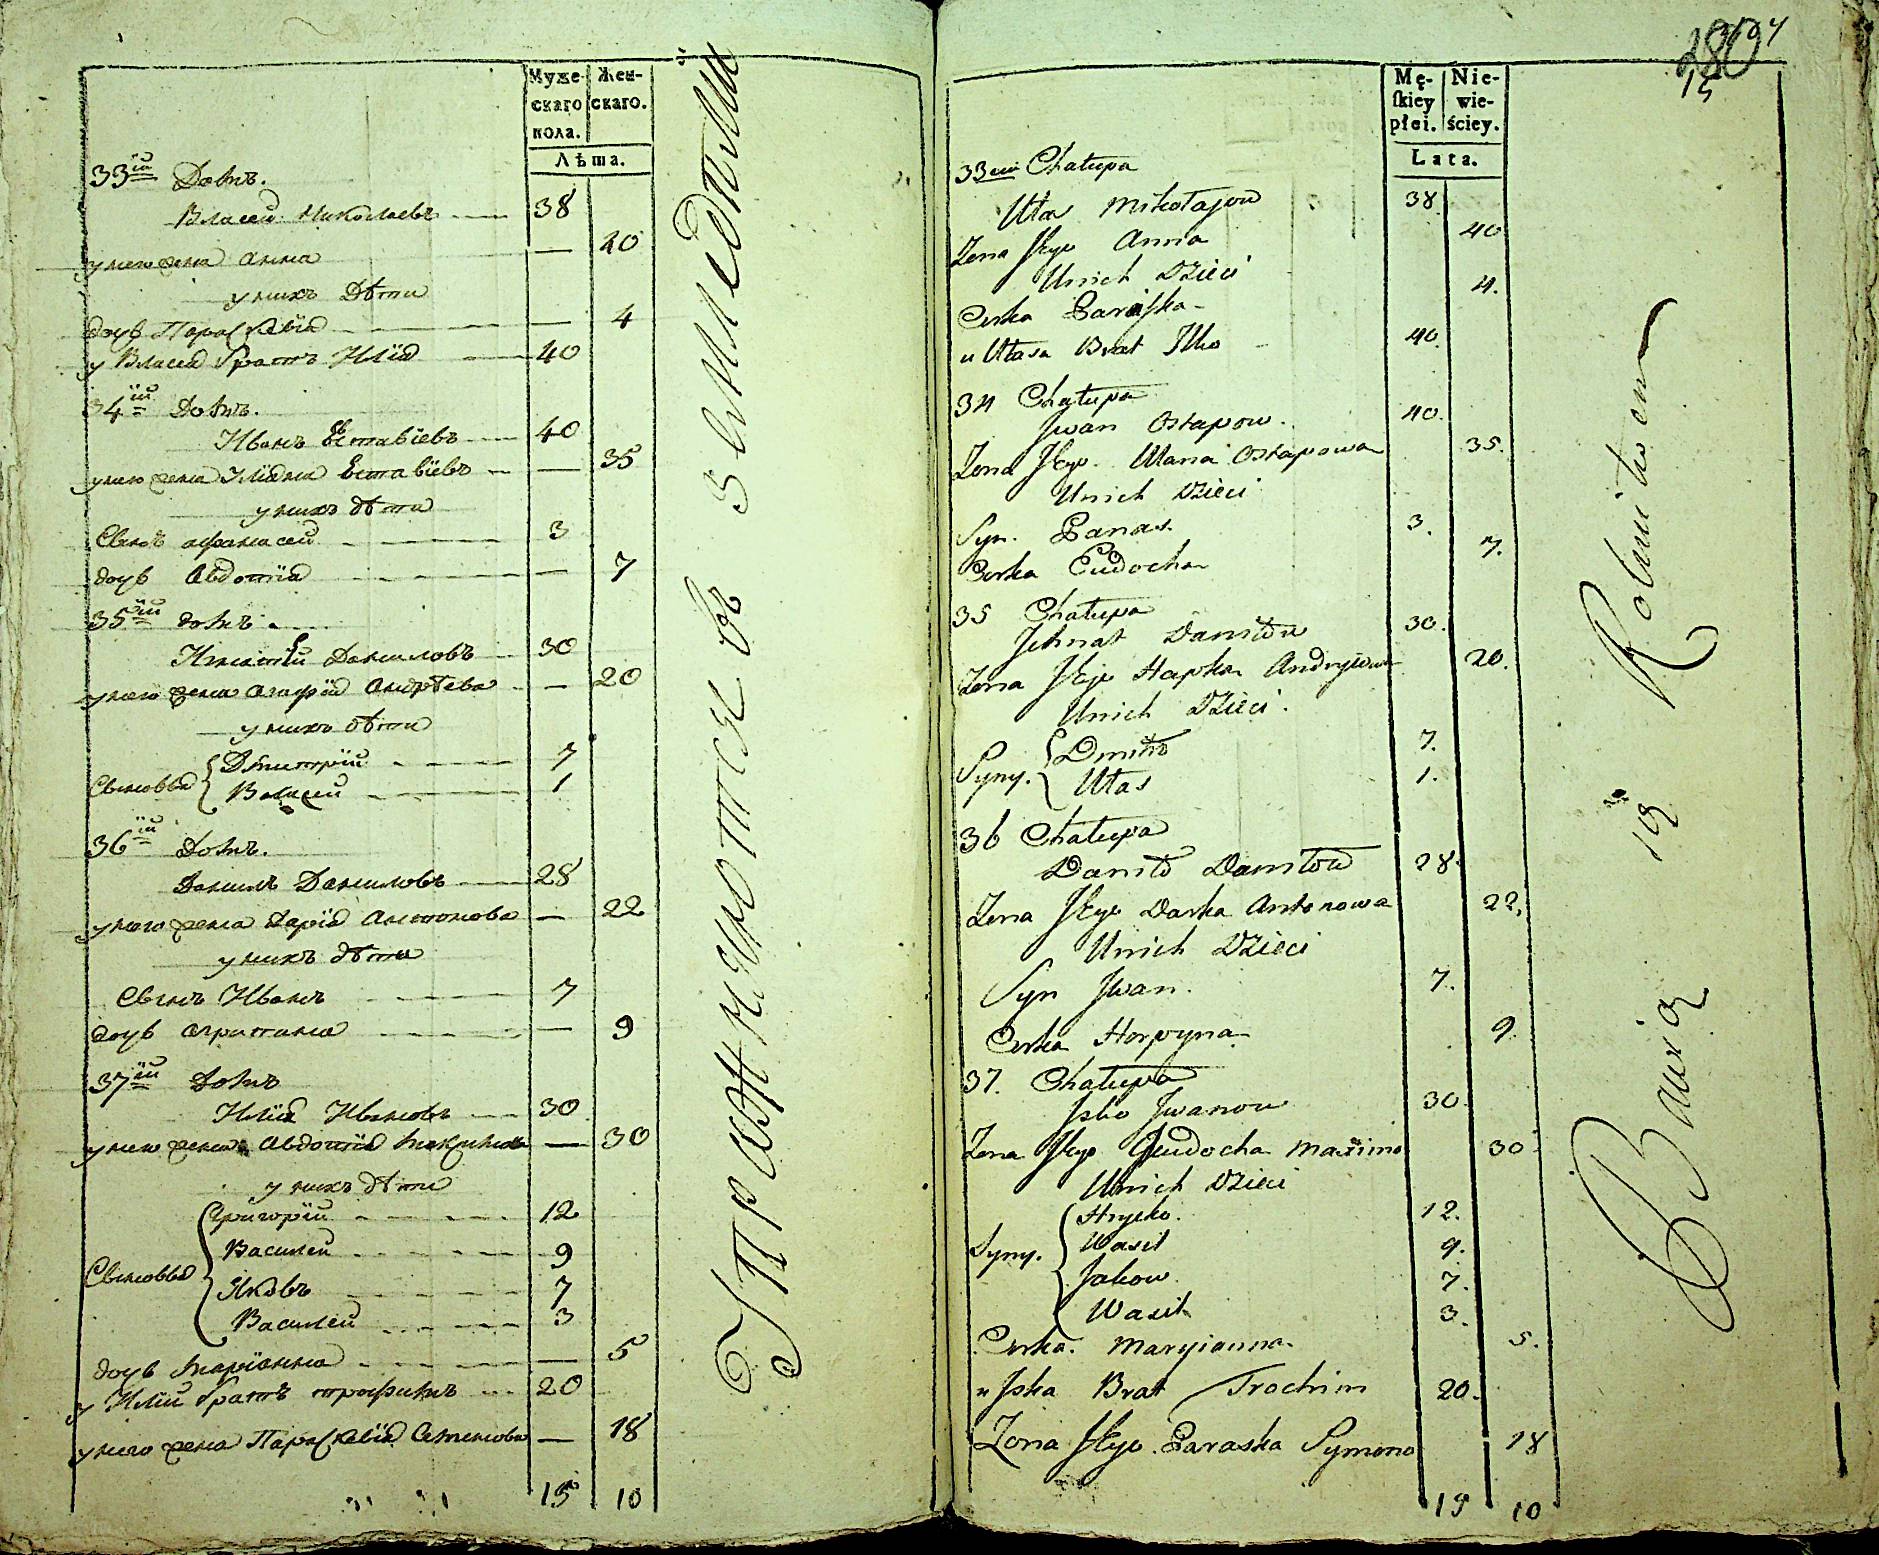 Муже-
скаго
пола.
Жен-
скаго.
Лѣта.
33ій Домъ.
Власей Николаевъ 38
у него жена Анна — 40
у нихъ Дѣти
дочь Параскевіа — 4
у Власея братъ Иліа 40
34ій Домъ.
Иванъ Естафіевъ 40
у него жена Уліана Естафіевъ — 35
у нихъ дѣти
Сынъ Афанасей 3
дочь Авдотіа — 7
35ій домъ.
Игнатій Даниловъ 30
у него жена Агафіа Андрѣева — 20
у нихъ дѣти
Сыновья { Дмитрій 7
Власей 1
36ій Домъ.
Данилъ Даниловъ 28
у него жена Дарія Антонова — 22
у нихъ дѣти
Сынъ Иванъ 7
дочь Агрипина — 9
37ій Домъ
Иліа Ивановъ 30
у него жена Авдотіа Максимова — 30
у нихъ дѣти
Сыновья { Григорій 12
Василей 9
Яковъ 7
Василей 3
дочь Маріанна — 5
у Иліи братъ Трофимъ 20
у него жена Параскевіа Семенова — 18
15 10
Упражняются въ земледѣліи
Mę-
skiey
płci.
Nie-
wie-
ściey.
Lata.
33 Chałupa
Ułas Mikołajow 38
Zona Jego Anna 40
Unich Dzieci
Corka Paraska 4.
u Ułasa Brat Ilko 40.
34 Chałupa
Jwan Ostapow. 40.
Zona Jego Ulana Ostapowa 35.
Unich Dzieci
Syn. Panas. 3.
Corka Eudocha 7.
35 Chałupa
Jchnat Daniłow 30.
Zona Jego Hapka Andryiowa 20.
Unich Dzieci.
Syny. { Dmitro 7.
Ułas 1.
36 Chałupa
Daniło Daniłow 28.
Zona Jego Darka Antonowa 22.
Unich Dzieci
Syn Jwan. 7.
Corka Horpyna 9.
37. Chałupa
Jlko Jwanow 30.
Zona Jego Jeudocha Maximo 30.
Unich Dzieci
Syny. { Hryćko. 12.
Wasil 9.
Jakow 7.
Wasil 3.
Corka. Maryianna. 5.
u Jlka Brat Trochim 20.
Zona Jego. Paraska Symono 18
15 10
Bawią się Rolnictwem
280
15